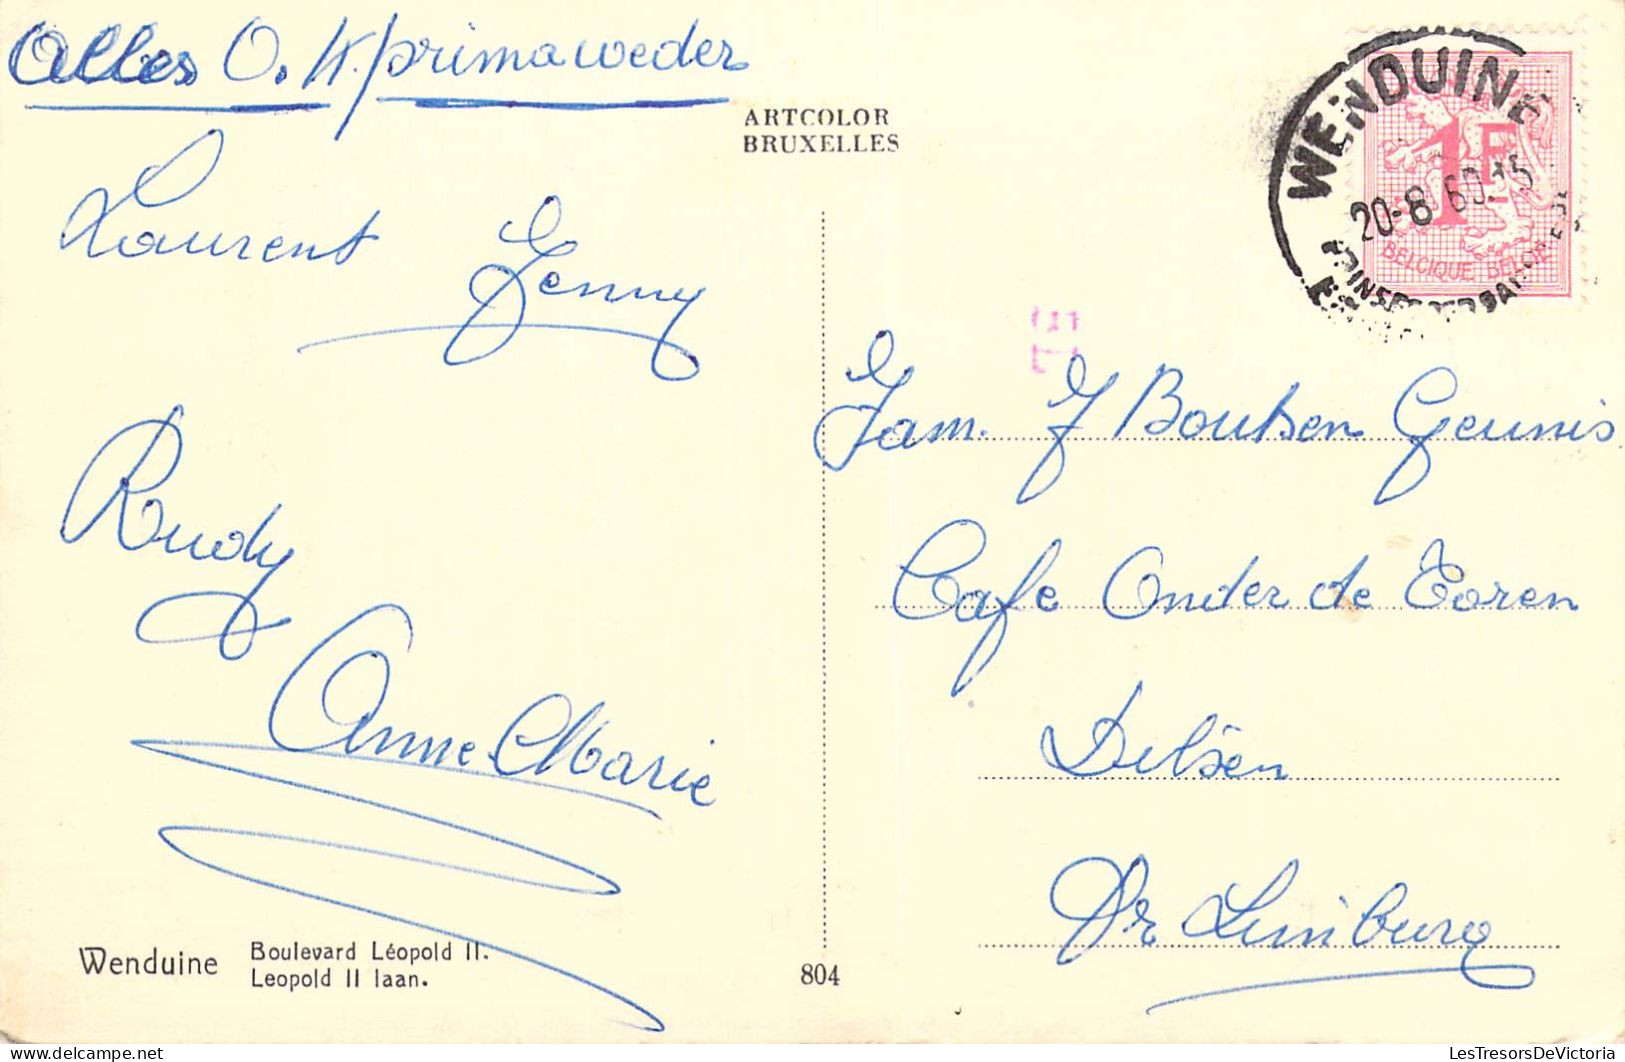 Alles O.K. prima weder
ARTCOLOR
BRUXELLES
WENDUINE
20-8 60.15
1F
BELGIQUE BELGIE
Laurent
Jenny
Rudy
Anne Marie
Fam. J Boutsen Geunis
Cafe Onder de Toren
Dilsen
Pr Limburg
Wenduine
Boulevard Léopold II.
Leopold II laan.
804
LesTresorsDeVictoria